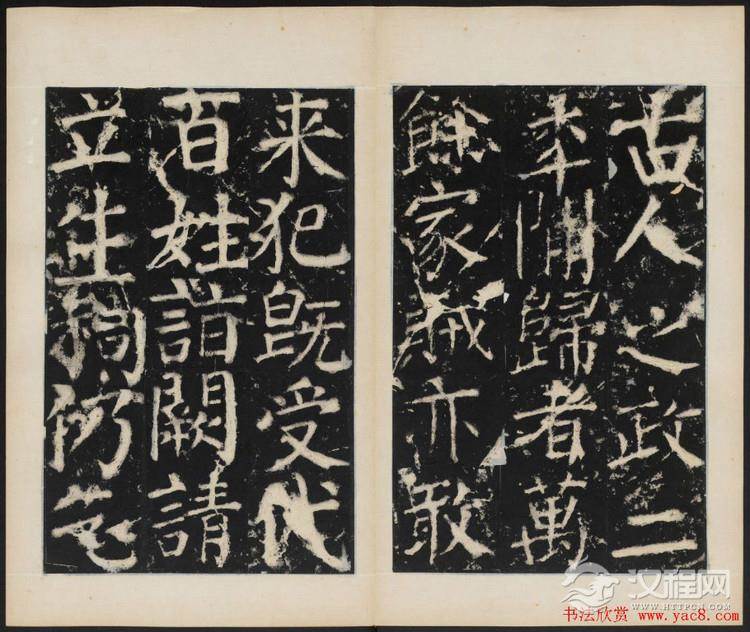 古人之政二
年間歸者萬
餘家賊亦敢
来犯既受代
百姓詣闕請
立生祠仍乞
汉程网
WWW.HTTPCN.COM
书法欣赏 www.yac8.com